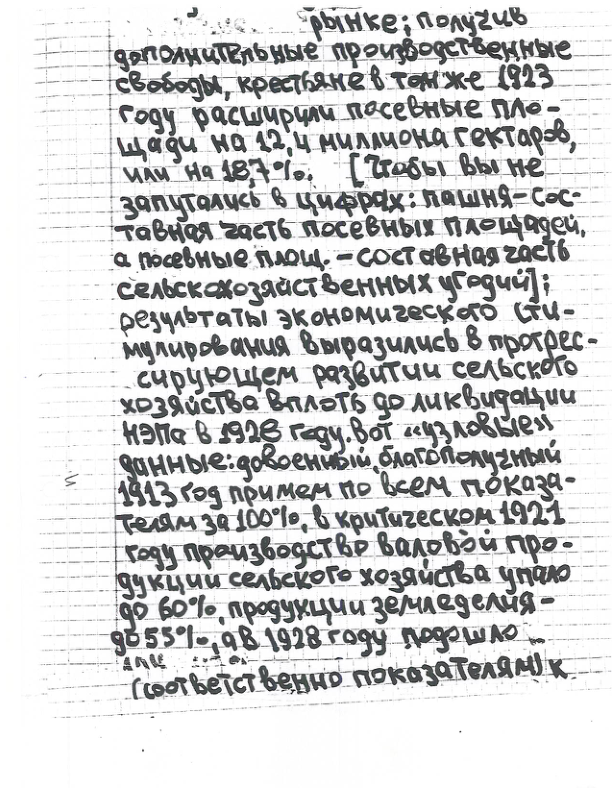 рынке; получив
дополнительные производственные
свободы, крестьяне в том же 1923
году расширили посевные пло-
щади на 12,4 миллиона гектаров,
или на 18,7%. [Чтобы вы не
запутались в цифрах: пашня - сос-
тавная часть посевных площадей,
а посевные площ. - составная часть
сельскохозяйственных угодий];
результаты экономического сти-
мулирования выразились в прогрес-
сирующем развитии сельского
хозяйства вплоть до ликвидации
НЭПа в 1928 году. Вот «узловые»
данные: довоенный благополучный
1913 год примем по всем показа-
телям за 100%, в критическом 1921
году производство валовой про-
дукции сельского хозяйства упало
до 60%, продукции земледелия -
до 55%, а в 1928 году подошло
(соответственно показателям) к